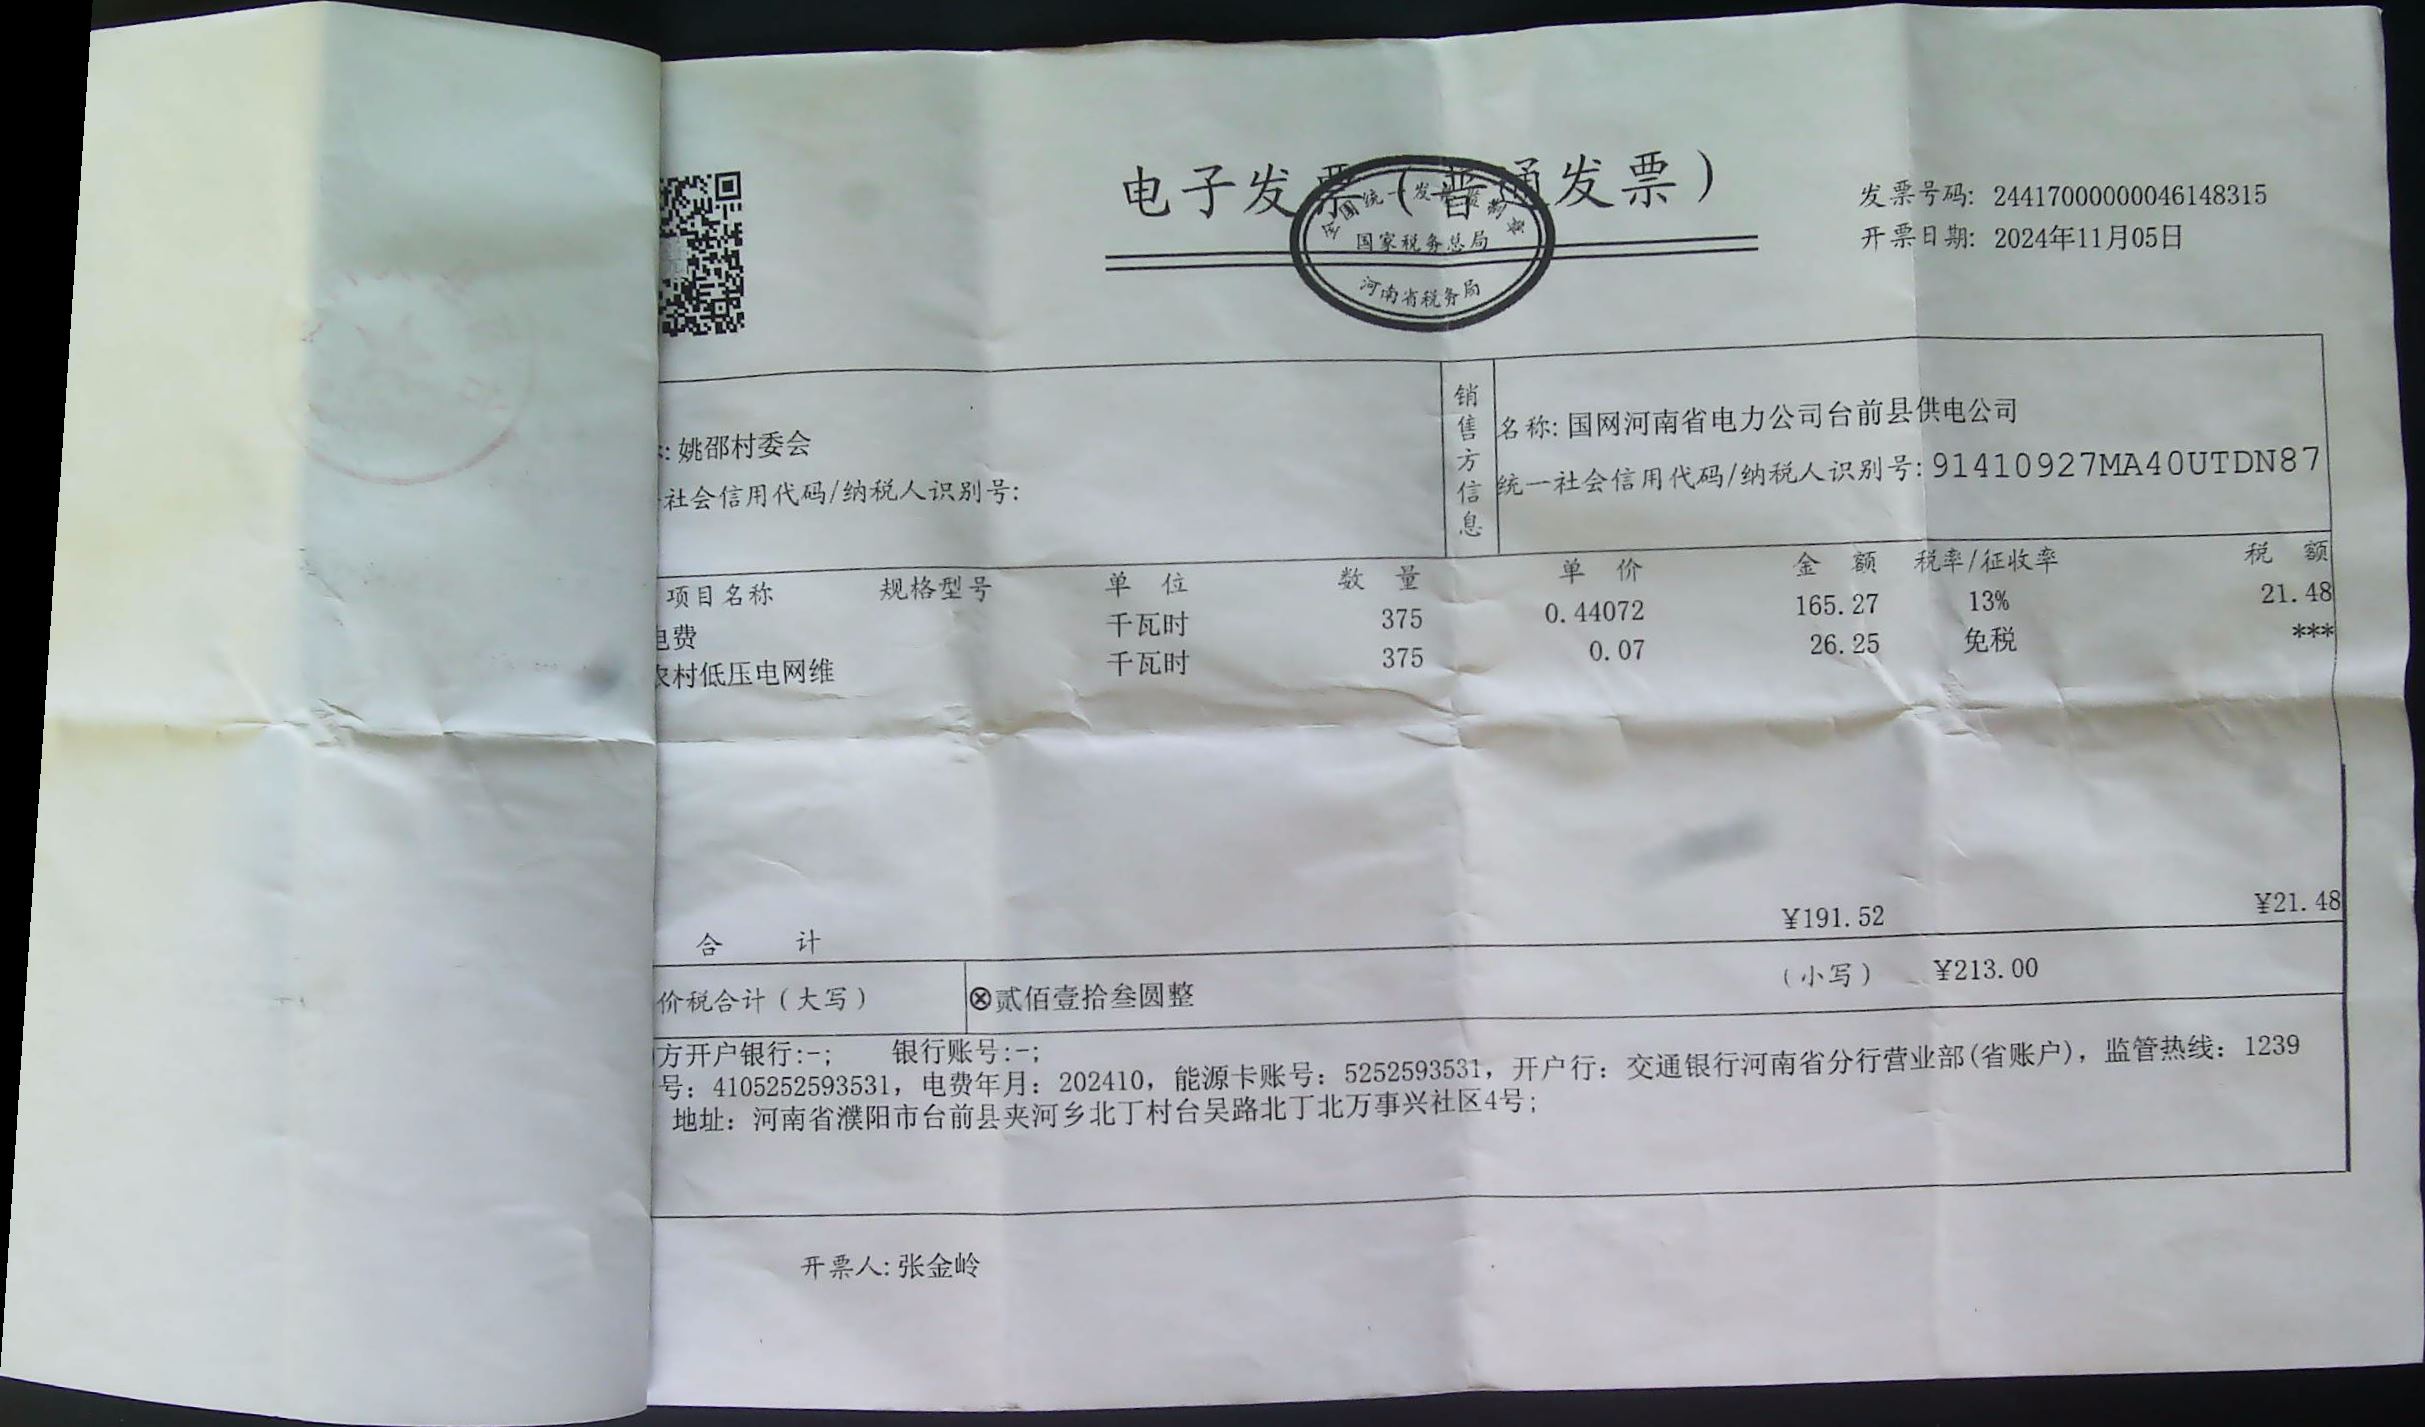 电子发票（普通发票）
全国统一发票监制章
国家税务总局
河南省税务局
发票号码: 24417000000046148315
开票日期: 2024年11月05日
: 姚邵村委会
社会信用代码/纳税人识别号:
销售方信息
名称: 国网河南省电力公司台前县供电公司
统一社会信用代码/纳税人识别号: 91410927MA40UTDN87
项目名称 规格型号 单 位 数 量 单 价 金 额 税率/征收率 税 额
电费 千瓦时 375 0.44072 165.27 13% 21.48
农村低压电网维 千瓦时 375 0.07 26.25 免税 ***
合 计 ¥191.52 ¥21.48
价税合计（大写） ⊗贰佰壹拾叁圆整 （小写） ¥213.00
方开户银行:-; 银行账号:-;
号: 4105252593531, 电费年月: 202410, 能源卡账号: 5252593531, 开户行: 交通银行河南省分行营业部(省账户), 监管热线: 1239
地址: 河南省濮阳市台前县夹河乡北丁村台吴路北丁北万事兴社区4号;
开票人: 张金岭